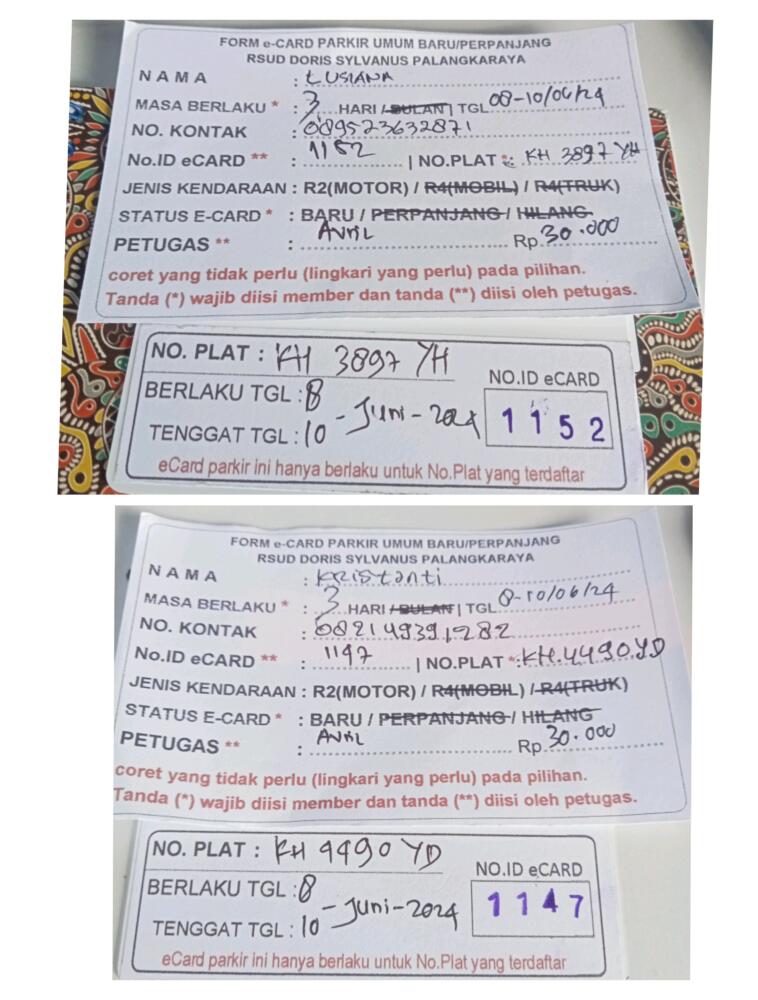 FORM e-CARD PARKIR UMUM BARU/PERPANJANG
RSUD DORIS SYLVANUS PALANGKARAYA
NAMA : LUSIANA
MASA BERLAKU * : 3 HARI / BULAN | TGL 08-10/06/24
NO. KONTAK : 089523632871
No.ID eCARD ** : 1152 | NO.PLAT *: KH 3897 YH
JENIS KENDARAAN : R2(MOTOR) / R4(MOBIL) / R4(TRUK)
STATUS E-CARD * : BARU / PERPANJANG / HILANG
PETUGAS ** : AVRIL Rp.30.000
coret yang tidak perlu (lingkari yang perlu) pada pilihan.
Tanda (*) wajib diisi member dan tanda (**) diisi oleh petugas.
NO. PLAT : KH 3897 YH
NO.ID eCARD
BERLAKU TGL : 8
1152
TENGGAT TGL : 10 - Juni - 2024
eCard parkir ini hanya berlaku untuk No.Plat yang terdaftar
FORM e-CARD PARKIR UMUM BARU/PERPANJANG
RSUD DORIS SYLVANUS PALANGKARAYA
NAMA : Kristanti
MASA BERLAKU * : 3 HARI / BULAN | TGL 8-10/06/24
NO. KONTAK : 082149391282
No.ID eCARD ** : 1147 | NO.PLAT *: KH.4490.YD
JENIS KENDARAAN : R2(MOTOR) / R4(MOBIL) / R4(TRUK)
STATUS E-CARD * : BARU / PERPANJANG / HILANG
PETUGAS ** : AVRIL Rp.30.000
coret yang tidak perlu (lingkari yang perlu) pada pilihan.
Tanda (*) wajib diisi member dan tanda (**) diisi oleh petugas.
NO. PLAT : KH 4490 YD
NO.ID eCARD
BERLAKU TGL : 8
1147
TENGGAT TGL : 10 - Juni - 2024
eCard parkir ini hanya berlaku untuk No.Plat yang terdaftar